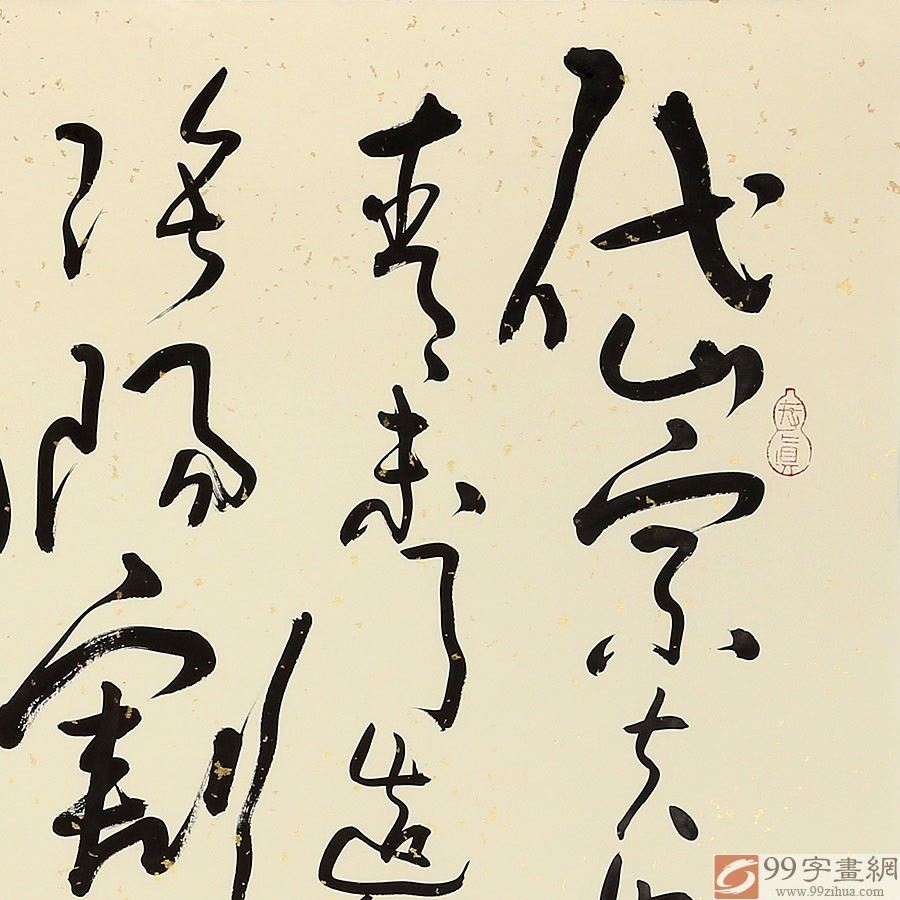 岱宗夫
青未了造
陰陽割
99字畫網
www.99zihua.com